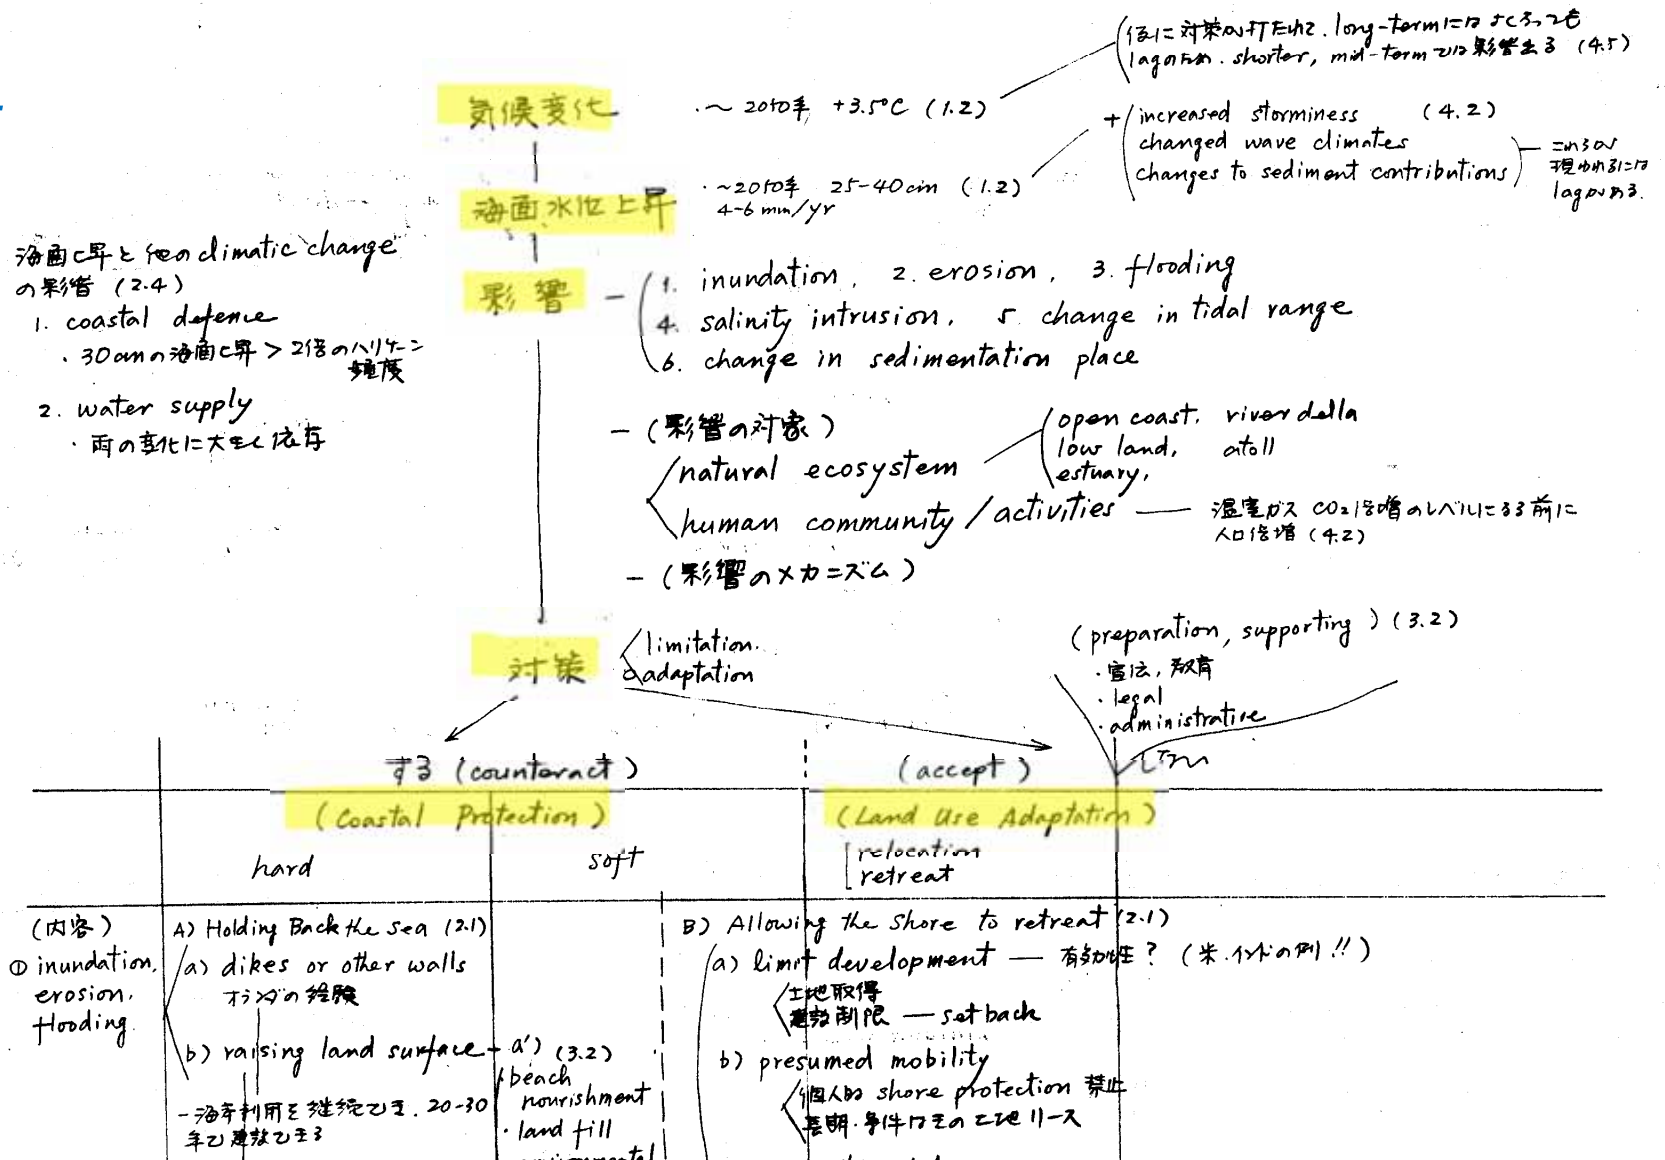 仮に対策が打たれて、long-termにはよくなっても
lagのため、shorter, mid-termでは影響出る (4.5)
気候変化
・~ 2050年 +3.5°C (1.2)
+ increased storminess (4.2)
changed wave climates
changes to sediment contributions
これらが
現われるには
lagがある.
海面水位上昇
・~2050年 25-40cm (1.2)
4-6 mm/yr
海面上昇と他のclimatic change
の影響 (2.4)
1. coastal defence
・30cmの海面上昇 > 2倍のハリケーン
頻度
2. water supply
・雨の変化に大きく依存
影響
1. inundation, 2. erosion, 3. flooding
4. salinity intrusion, 5. change in tidal range
6. change in sedimentation place
- (影響の対象)
natural ecosystem
open coast, river delta
low land, atoll
estuary,
human community / activities
温室ガス CO2倍増のレベルになる前に
人口倍増 (4.2)
- (影響のメカニズム)
対策
limitation.
adaptation
(preparation, supporting) (3.2)
・宣伝, 教育
・legal
・administrative
する (counteract)
(accept)
しない
(Coastal Protection)
(Land Use Adaptation)
hard
soft
relocation
retreat
(内容)
① inundation,
erosion,
flooding
A) Holding Back the Sea (2.1)
a) dikes or other walls
オランダの経験
b) raising land surface
- 海岸利用を継続でき、20-30
年で建設できる
a') (3.2)
・beach
nourishment
・land fill
environmental
B) Allowing the Shore to retreat (2.1)
a) limit development — 有効性? (米・インドの例!!)
土地取得
建設制限 — set back
b) presumed mobility
個人的 shore protection 禁止
長期・条件付きの土地リース